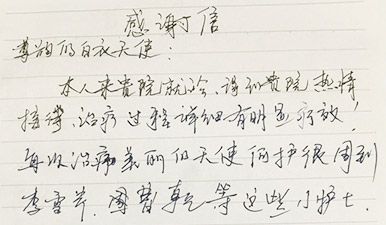 感谢信
尊敬的白衣天使:
本人来贵院就诊,得到贵院热情
接待,治疗过程详细有明显疗效,
每次治疗美丽的天使们护很周到
李雪芹、等这些小护士,